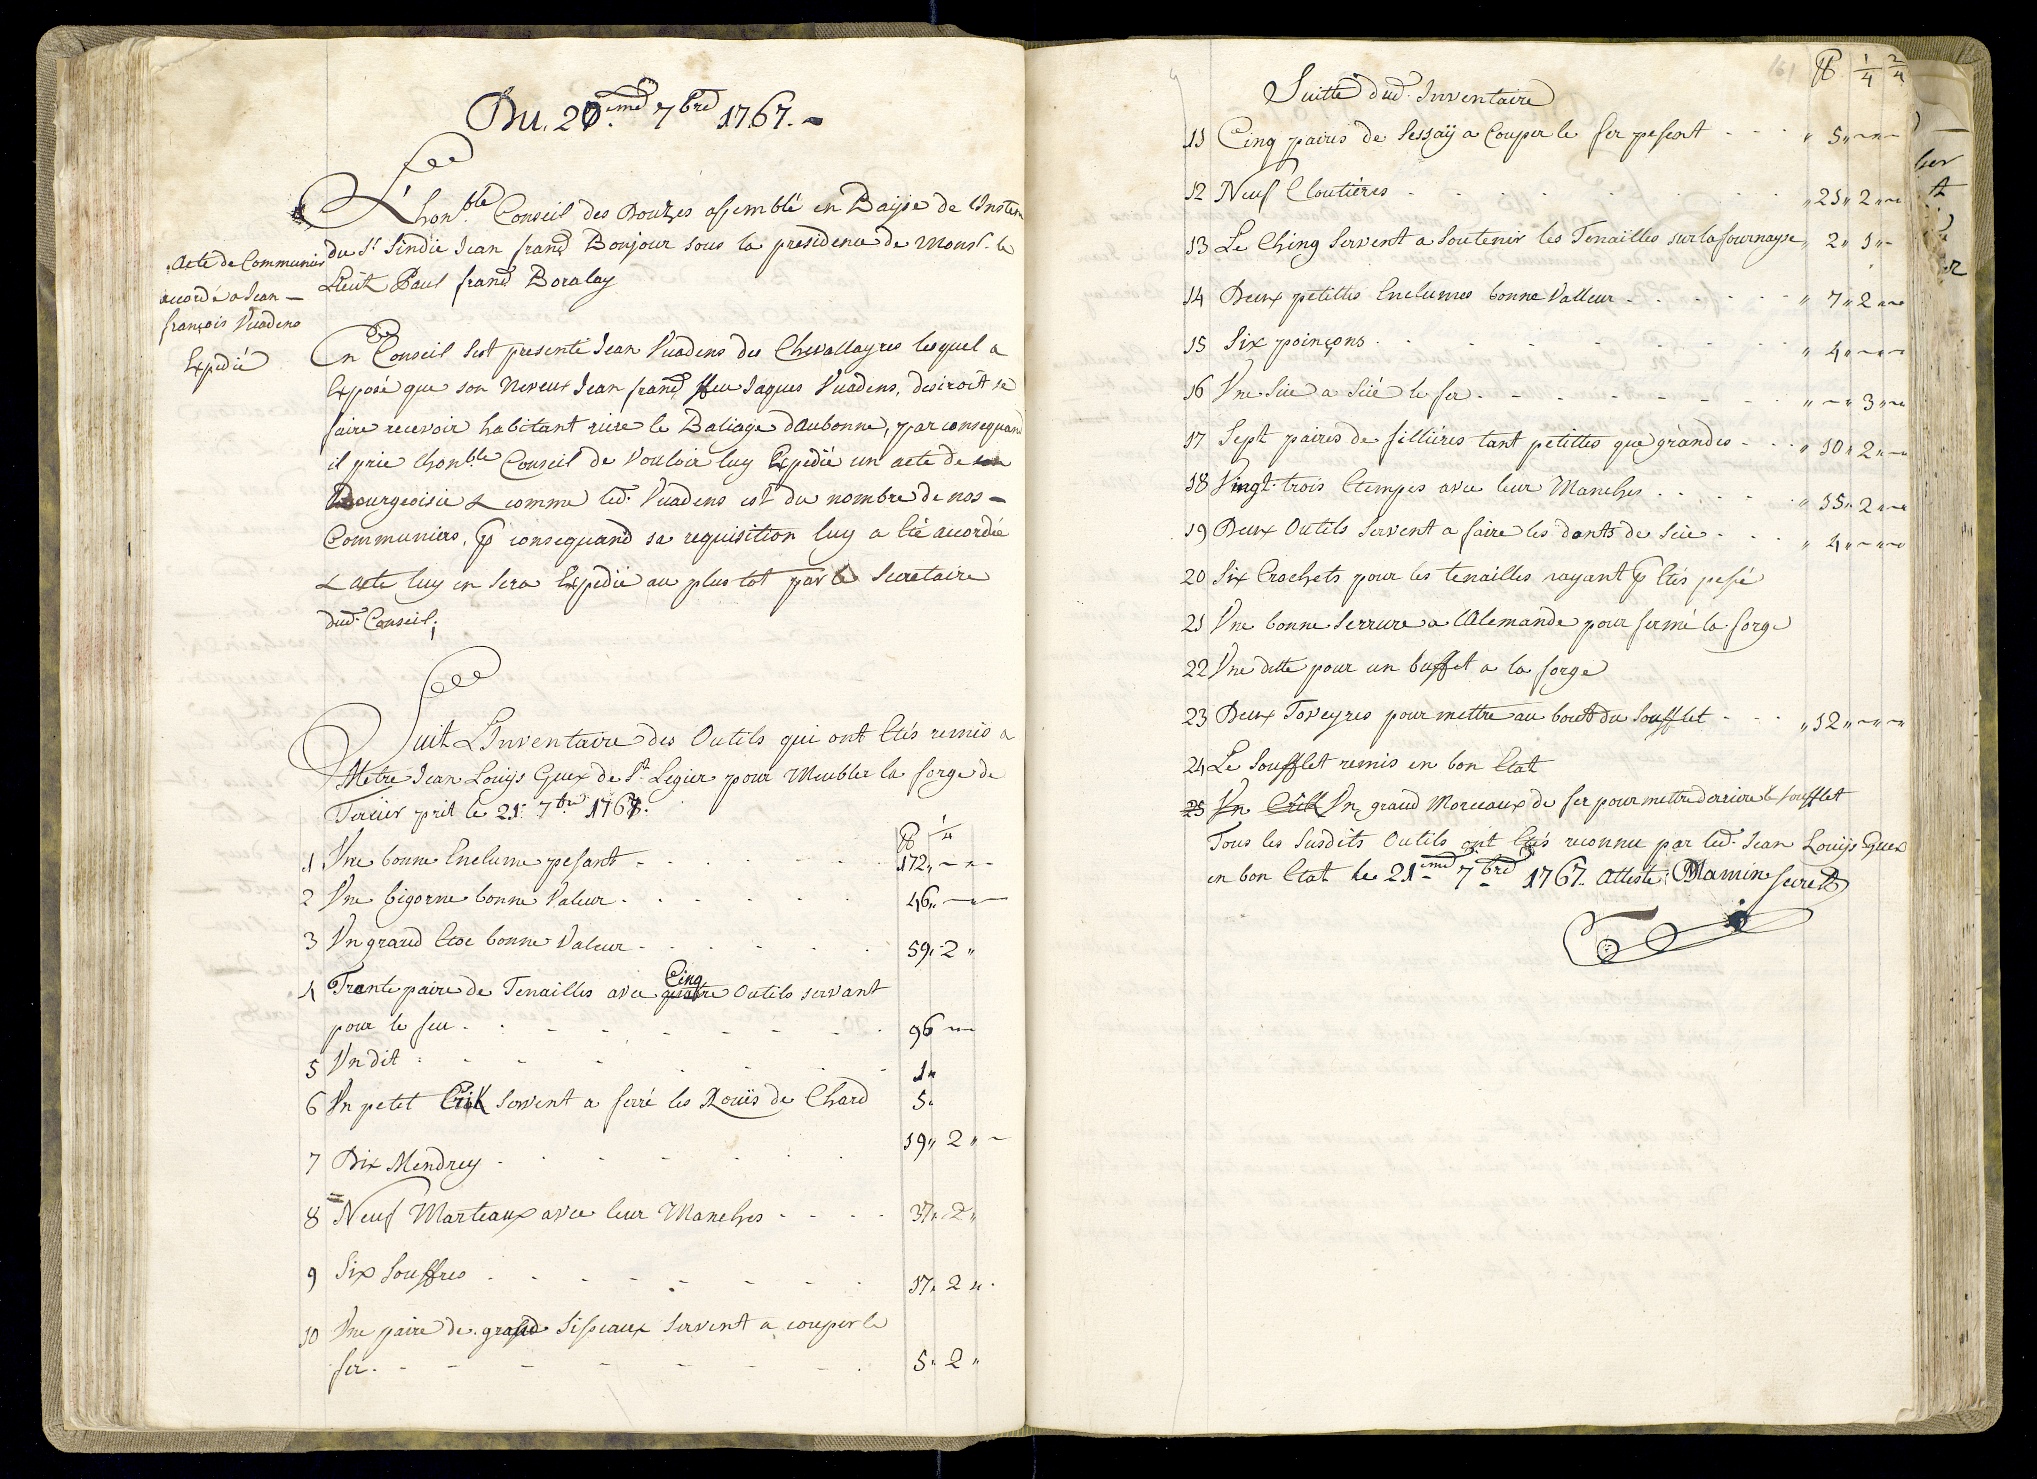 Du. 20.eme 7bre 1767.
L'honble Conseil des Douzes assemblé en Bajse de
du Sr Sindic Jean frans Bonjour sous la presidence de Monsr. le
Lieut Paul frans Boralay
Acte de Communier
accordé a Jean
françois Vuadens
Expedié
En Conseil Sest presenté Jean Vuadens des Chevallayres lesquel a
Exposé que son Neveux Jean frans ffeu Jaques Vuadens, desiroit se
faire recevoir habitant riere le Baliage d'Aubonne, par consequand
il prie Lhonble Conseil de Vouloir luy Expedié un acte de son
Bourgeoisie & comme led. Vuadens est du nombre de nos
Communiers, p consequand sa requisition luy a Eté accordée
& acte luy en Sera Expedié au plus tot par le Secretaire
dud. Conseil.
Suit L'Inventaire des Outils qui ont Etés remis a
Metre Jean Louys Guex de St. Legier pour Meubler la forge de
Tercier prit le 21. 7bre 1767.
℔ 1/4
1 Vne bonne Enclume pesant 172
2 Vne bigorne bonne Valeur 46
3 Vn grand Etoc bonne Valeur 59 2
4 Trente paire de Tenailles avec quatre Cinq Outils servant
pour le feu 96
5 Vn dit 1
6 Vn petit Crik Servent a ferré les Rouïs de Chard 5
7 Dix Mendrey 19 2
8 Neuf Marteaux avec leur Manches 37 2
9 Six Souffres 17 2
10 Vne paire de grand Siseaux Servent a couper le
fer 5 2
161
Suitte dud. Inventaire
℔ 1/4 2/4
11 Cinq paires de Sessaÿ a Couper le fer pesent 5
12 Neuf Cloutiéres 25 2
13 Le Ching Servent a Soutenir les Tenailles sur la fournayse 2 1
14 Deux petittes Enclumes bonne Valleur 7 2
15 Six poinçons 4
16 Vne Sïe a Siïé le fer 3
17 Sept paires de filliéres tant petittes que grandes 10 2
18 Vingt trois Etempes avec leur Manches 35 2
19 Deux Outils Servent a faire les dents de Siïe 4
20 Six Crochets pour les tenailles nayant p Etés pesé
21 Vne bonne Serrure a l'Alemande pour fermé la forge
22 Vne ditte pour un buffet a la forge
23 Deux Toveyres pour mettre au bout du Soufflet 12
24 Le Soufflet remis en bon Etat
25 Vn Crik Vn grand Morceaux de fer pour mettre derriere le soufflet
Tous les Susdits Outils ont Etés reconnu par led. Jean Louys Guex
en bon Etat le 21eme 7bre 1767. Atteste Mamin secret